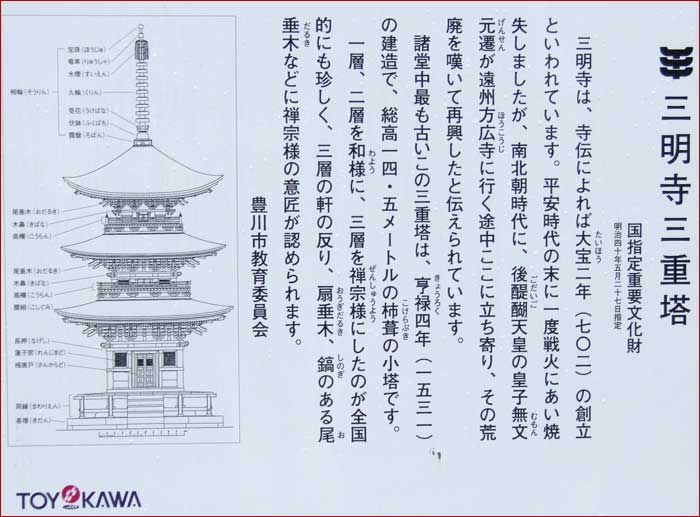 三明寺三重塔
国指定重要文化財
明治四十年五月二十七日指定
三明寺は、寺伝によれば大宝二年（七〇二）の創立
たいほう
といわれています。平安時代の末に一度戦火にあい焼
失しましたが、南北朝時代に、後醍醐天皇の皇子無文
ごだいご
むもん
元遷が遠州方広寺に行く途中ここに立ち寄り、その荒
げんせん
ほうこうじ
廃を嘆いて再興したと伝えられています。
諸堂中最も古いこの三重塔は、亨禄四年（一五三一）
きょうろく
の建造で、総高一四・五メートルの杮葺の小塔です。
こけらぶき
一層、二層を和様に、三層を禅宗様にしたのが全国
わよう
ぜんしゅうよう
的にも珍しく、三層の軒の反り、扇垂木、鎬のある尾
おうぎだるき
しのぎ
お
垂木などに禅宗様の意匠が認められます。
だるき
豊川市教育委員会
宝珠（ほうじゅ）
竜車（りゅうしゃ）
水煙（すいえん）
相輪（そうりん）
九輪（くりん）
受花（うけばな）
伏鉢（ふくばち）
露盤（ろばん）
尾垂木（おだるき）
木鼻（きばな）
高欄（こうらん）
尾垂木（おだるき）
木鼻（きばな）
高欄（こうらん）
腰組（こしぐみ）
長押（なげし）
連子窓（れんじまど）
桟唐戸（さんからど）
廻縁（まわりえん）
基壇（きだん）
TOYOKAWA